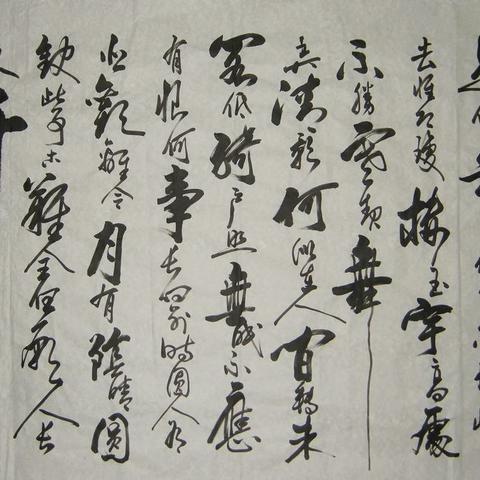 去惟恐瓊樓玉宇高處
不勝寒起舞
弄清影何似在人間轉朱
閣低綺戶照無眠不應
有恨何事長向別時圓人有
悲歡離合月有陰晴圓
缺此事古難全但願人長
久千